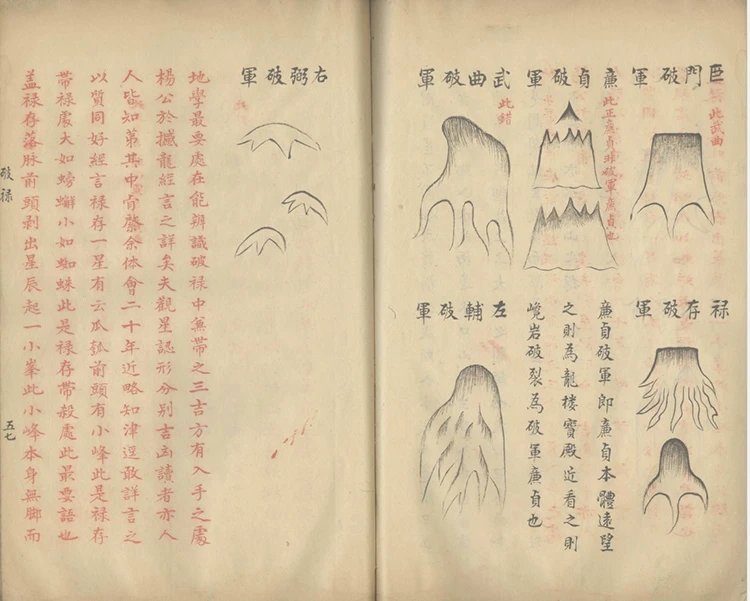 巨門破軍
此武曲
廉貞破軍
此正廉貞非破軍廉貞也
武曲破軍
此錯
禄存破軍
廉貞破軍即廉貞本體遠望
之則為龍楼寶殿近看之則
巉岩破裂為破軍廉貞也
左輔破軍
右弼破軍
地學最要處在能辨識破禄中兼帶之三吉方有入手之處
楊公於撼龍經言之詳矣夫觀星認形分别吉凶讀者亦人
人皆知第其中肯綮余体會二十年近略知津逕敢詳言之
以質同好經言禄存一星有云瓜瓠前頭有小峰此是禄存
帶禄處大如螃蠏小如蜘蛛此是禄存帶殺處此最要語也
盖禄存落脉前頭剥出星辰起一小峯此小峰本身無脚而
破禄
五七